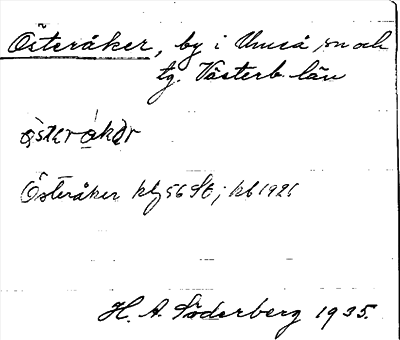 Österåker, by i Umeå sn och
tg. Västerb. län
österåker
Österåker kbg 56 St; kb 1926
H. A. Söderberg 1935.